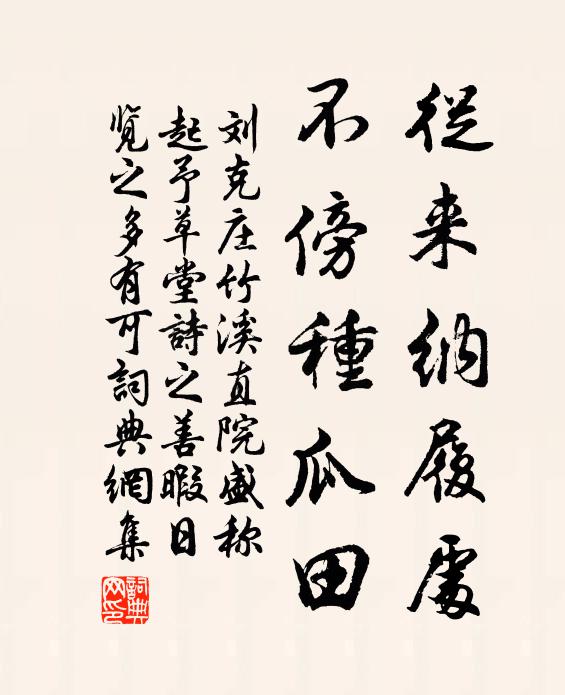 從来納履處
不傍種瓜田
刘克庄竹溪直院盛称
起予草堂詩之善暇日
覽之多有可詞典網集
詞典网印